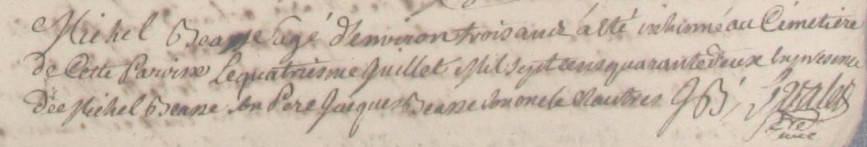 Michel Beasse agé d'environ trois ans a été inhumé au Cémetiere
de Cette Paroisse Le quatriesme Juillet Mil Sept cens quarante deux En presence
de Michel Beasse Son Pere Jacques Beasse Son oncle & autres